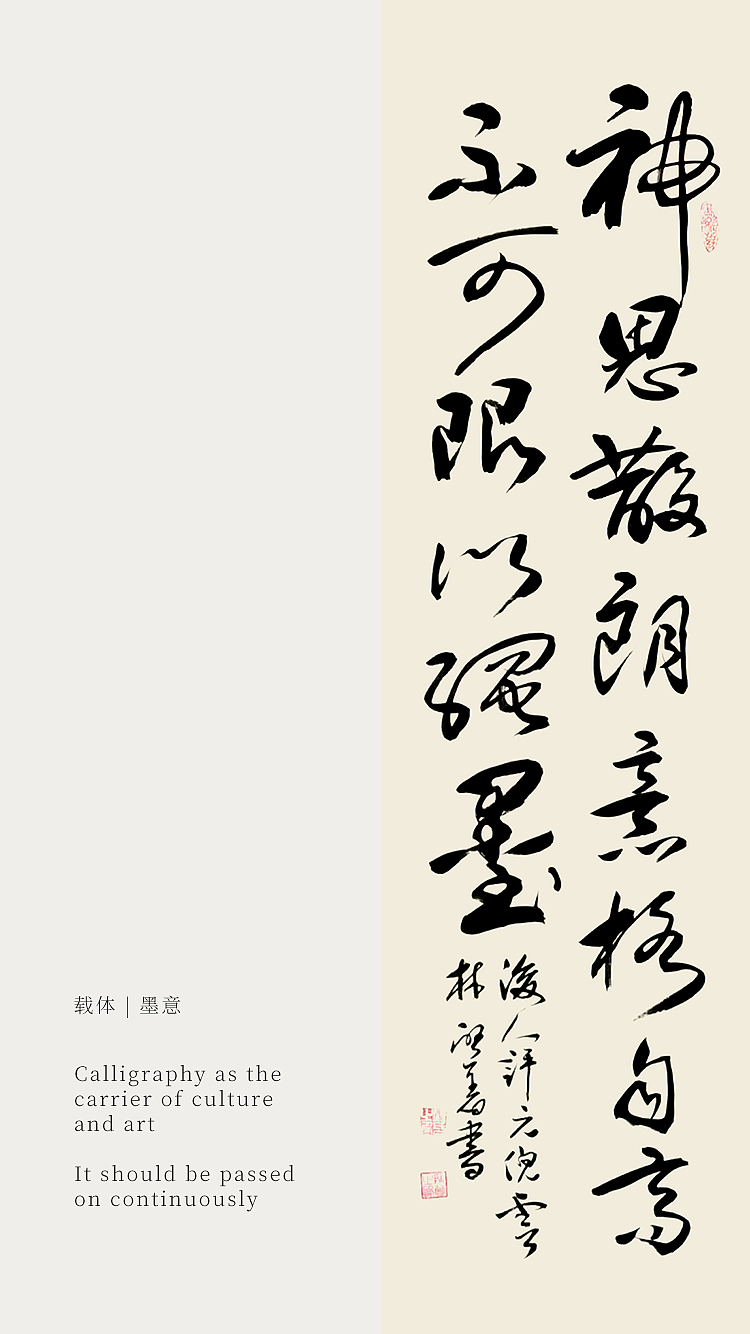 神思散朗意格自高
不可限以繩墨
後人評元倪雲
林善書
载体 | 墨意
Calligraphy as the
carrier of culture
and art
It should be passed
on continuously